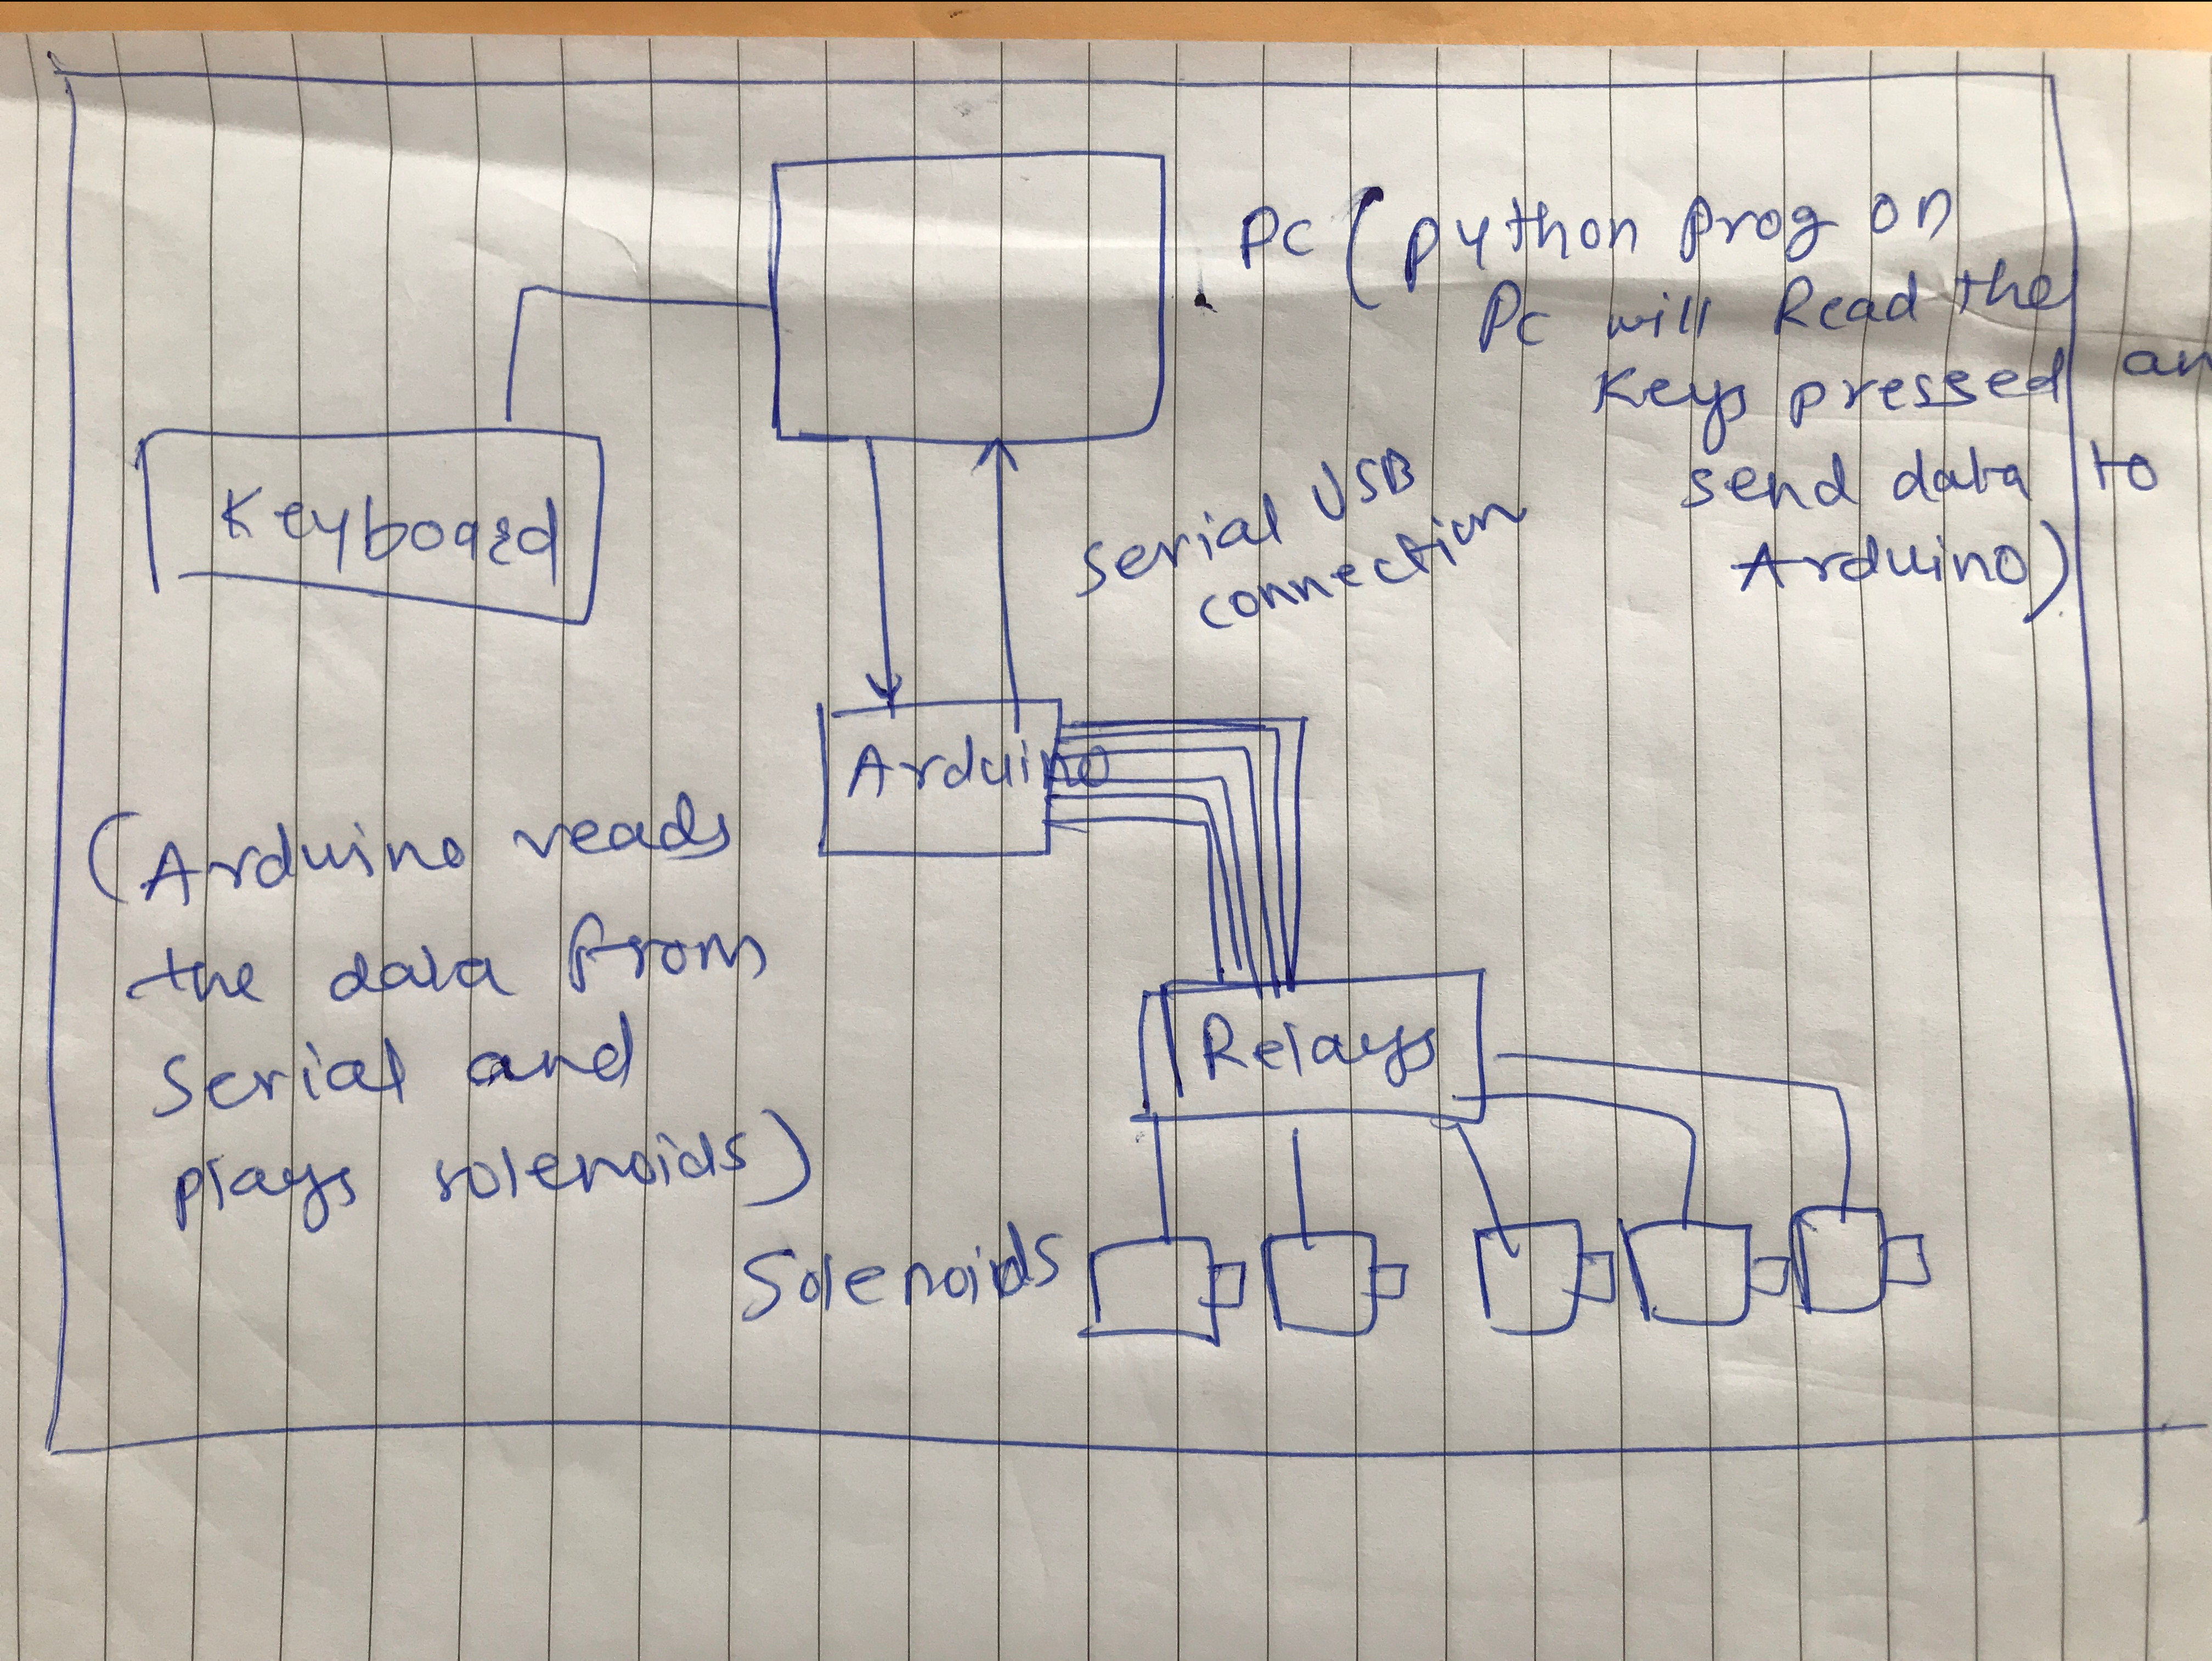 PC (python prog on
Pc will Read the
Keys pressed an
send data to
Arduino)
Keyboard
serial USB
connection
Arduino
(Arduino reads
the data from
serial and
plays solenoids)
Relays
Solenoids